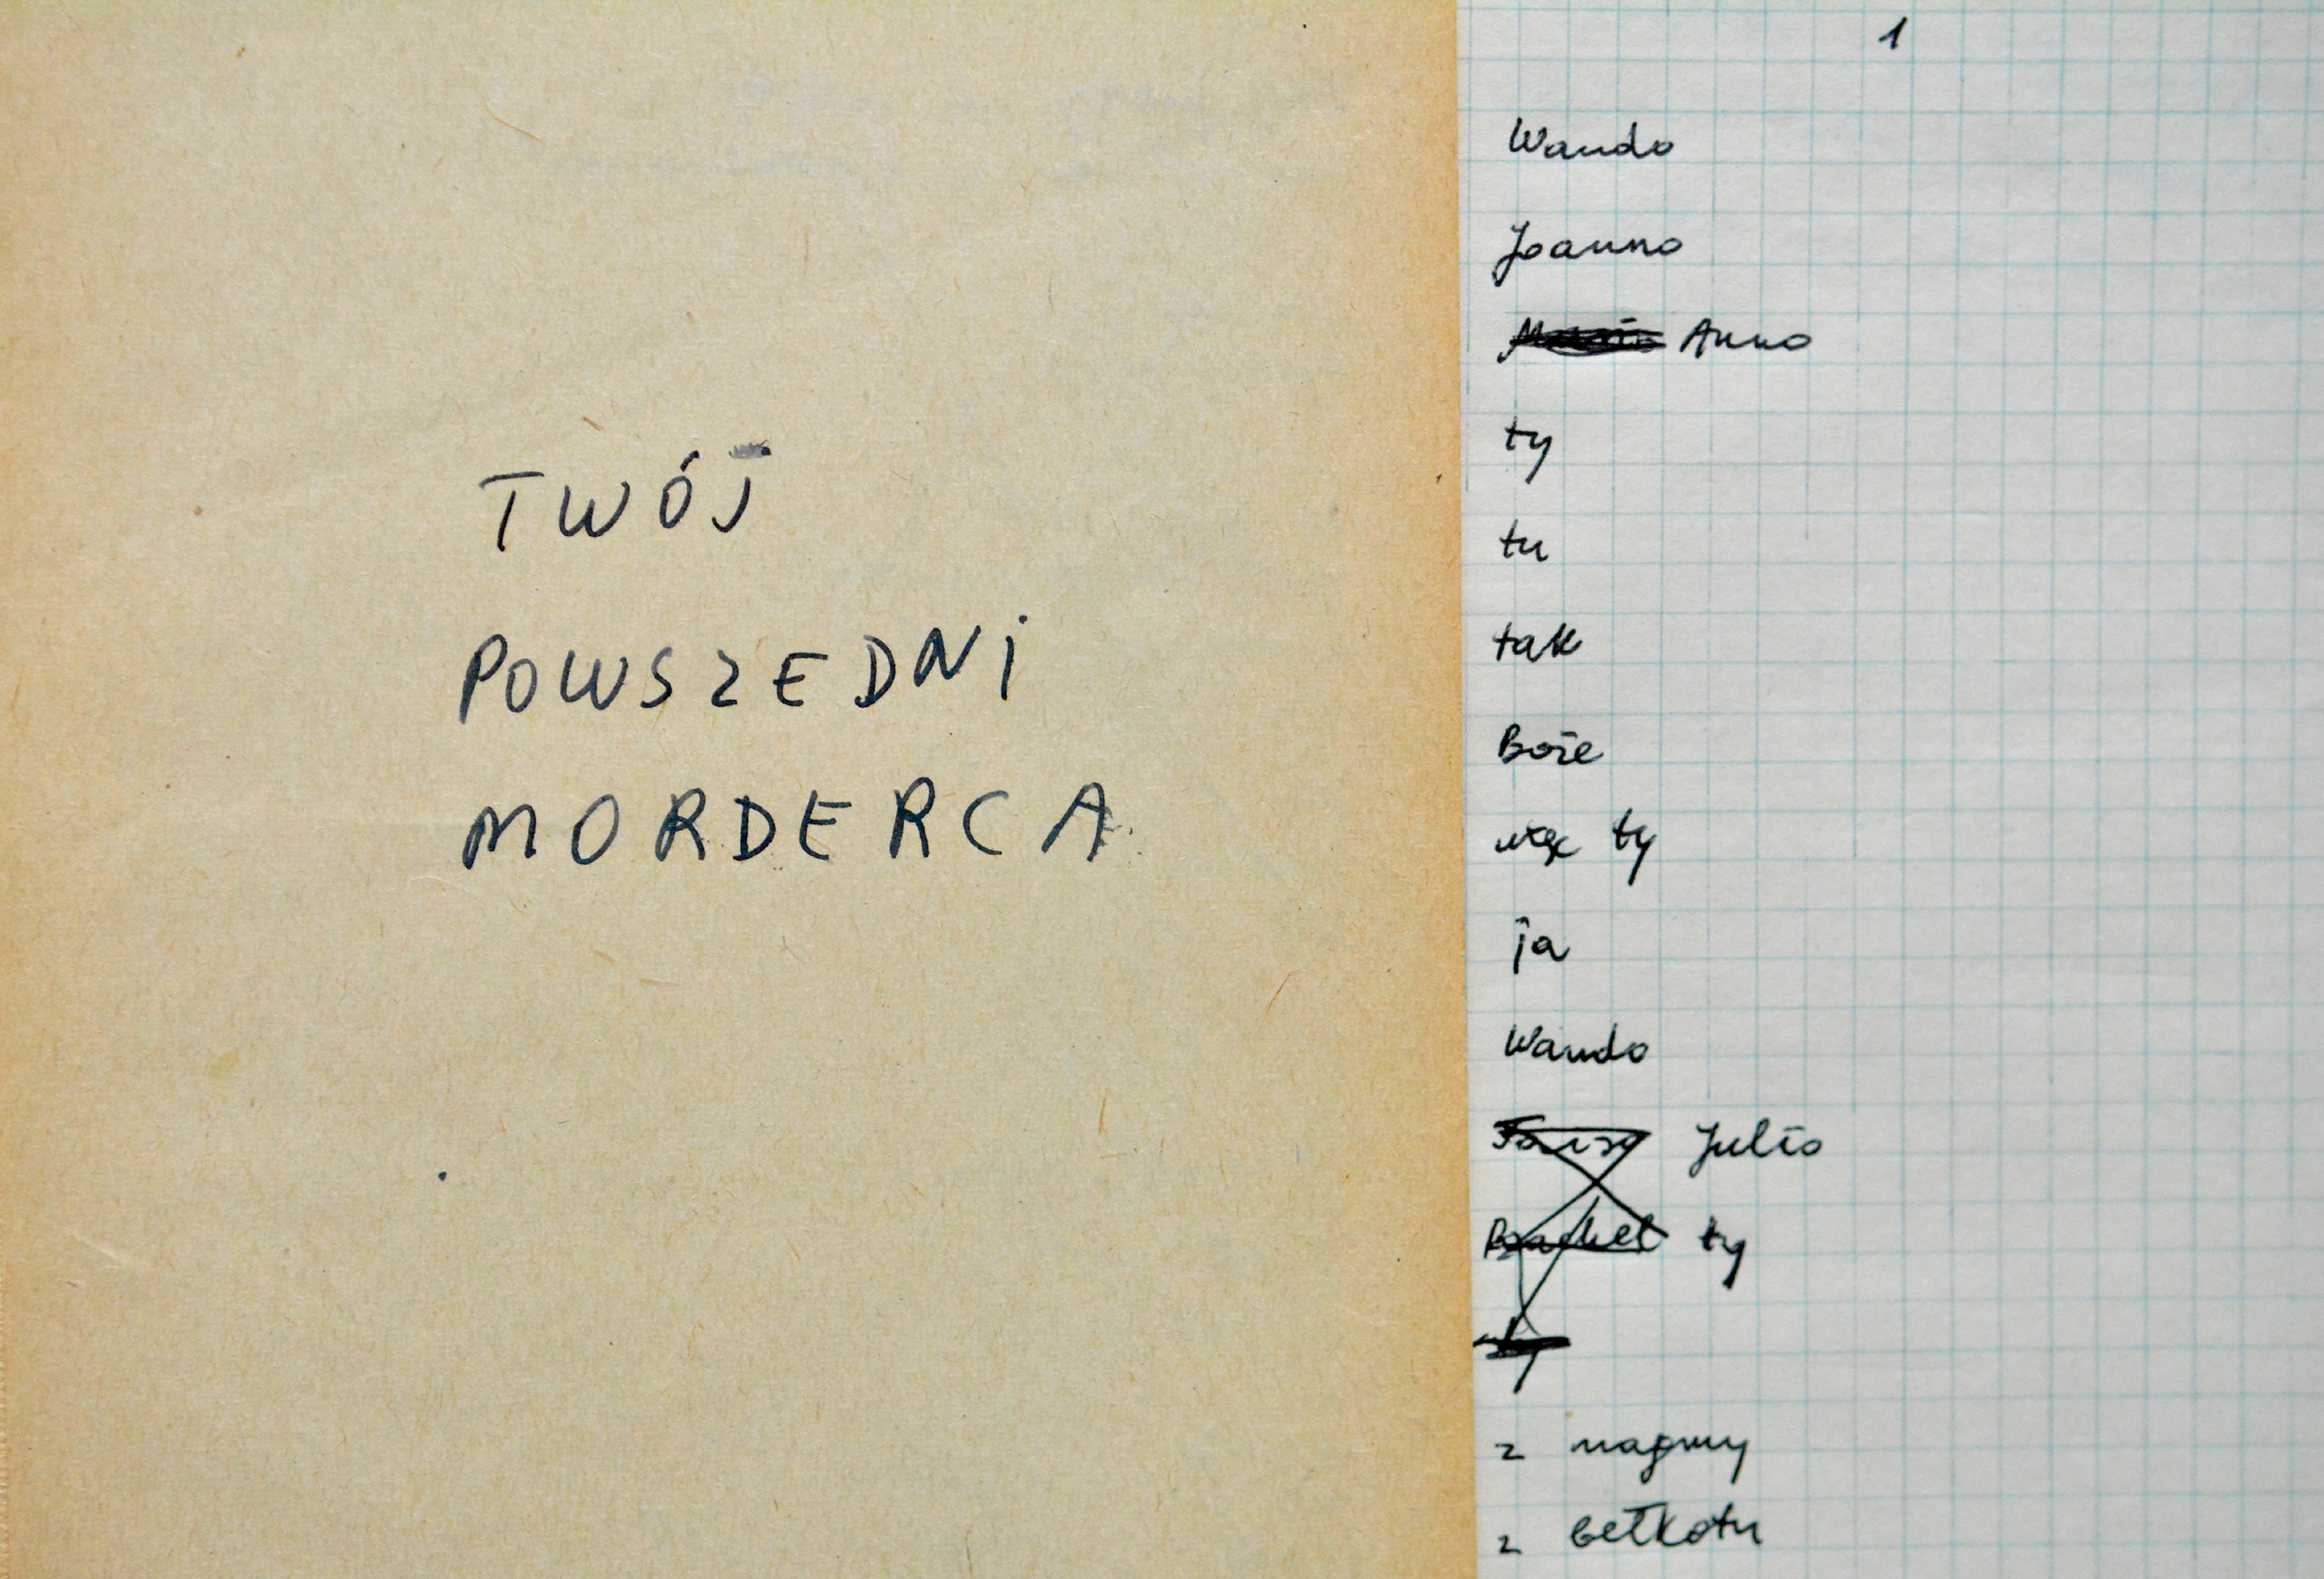 TWÓJ
POWSZEDNI
MORDERCA
1
Wando
Joanno
Anno
ty
tu
tak
Boże
więc ty
ja
Wando
Julio
Rachel ty
ty
z magmy
z bełkotu